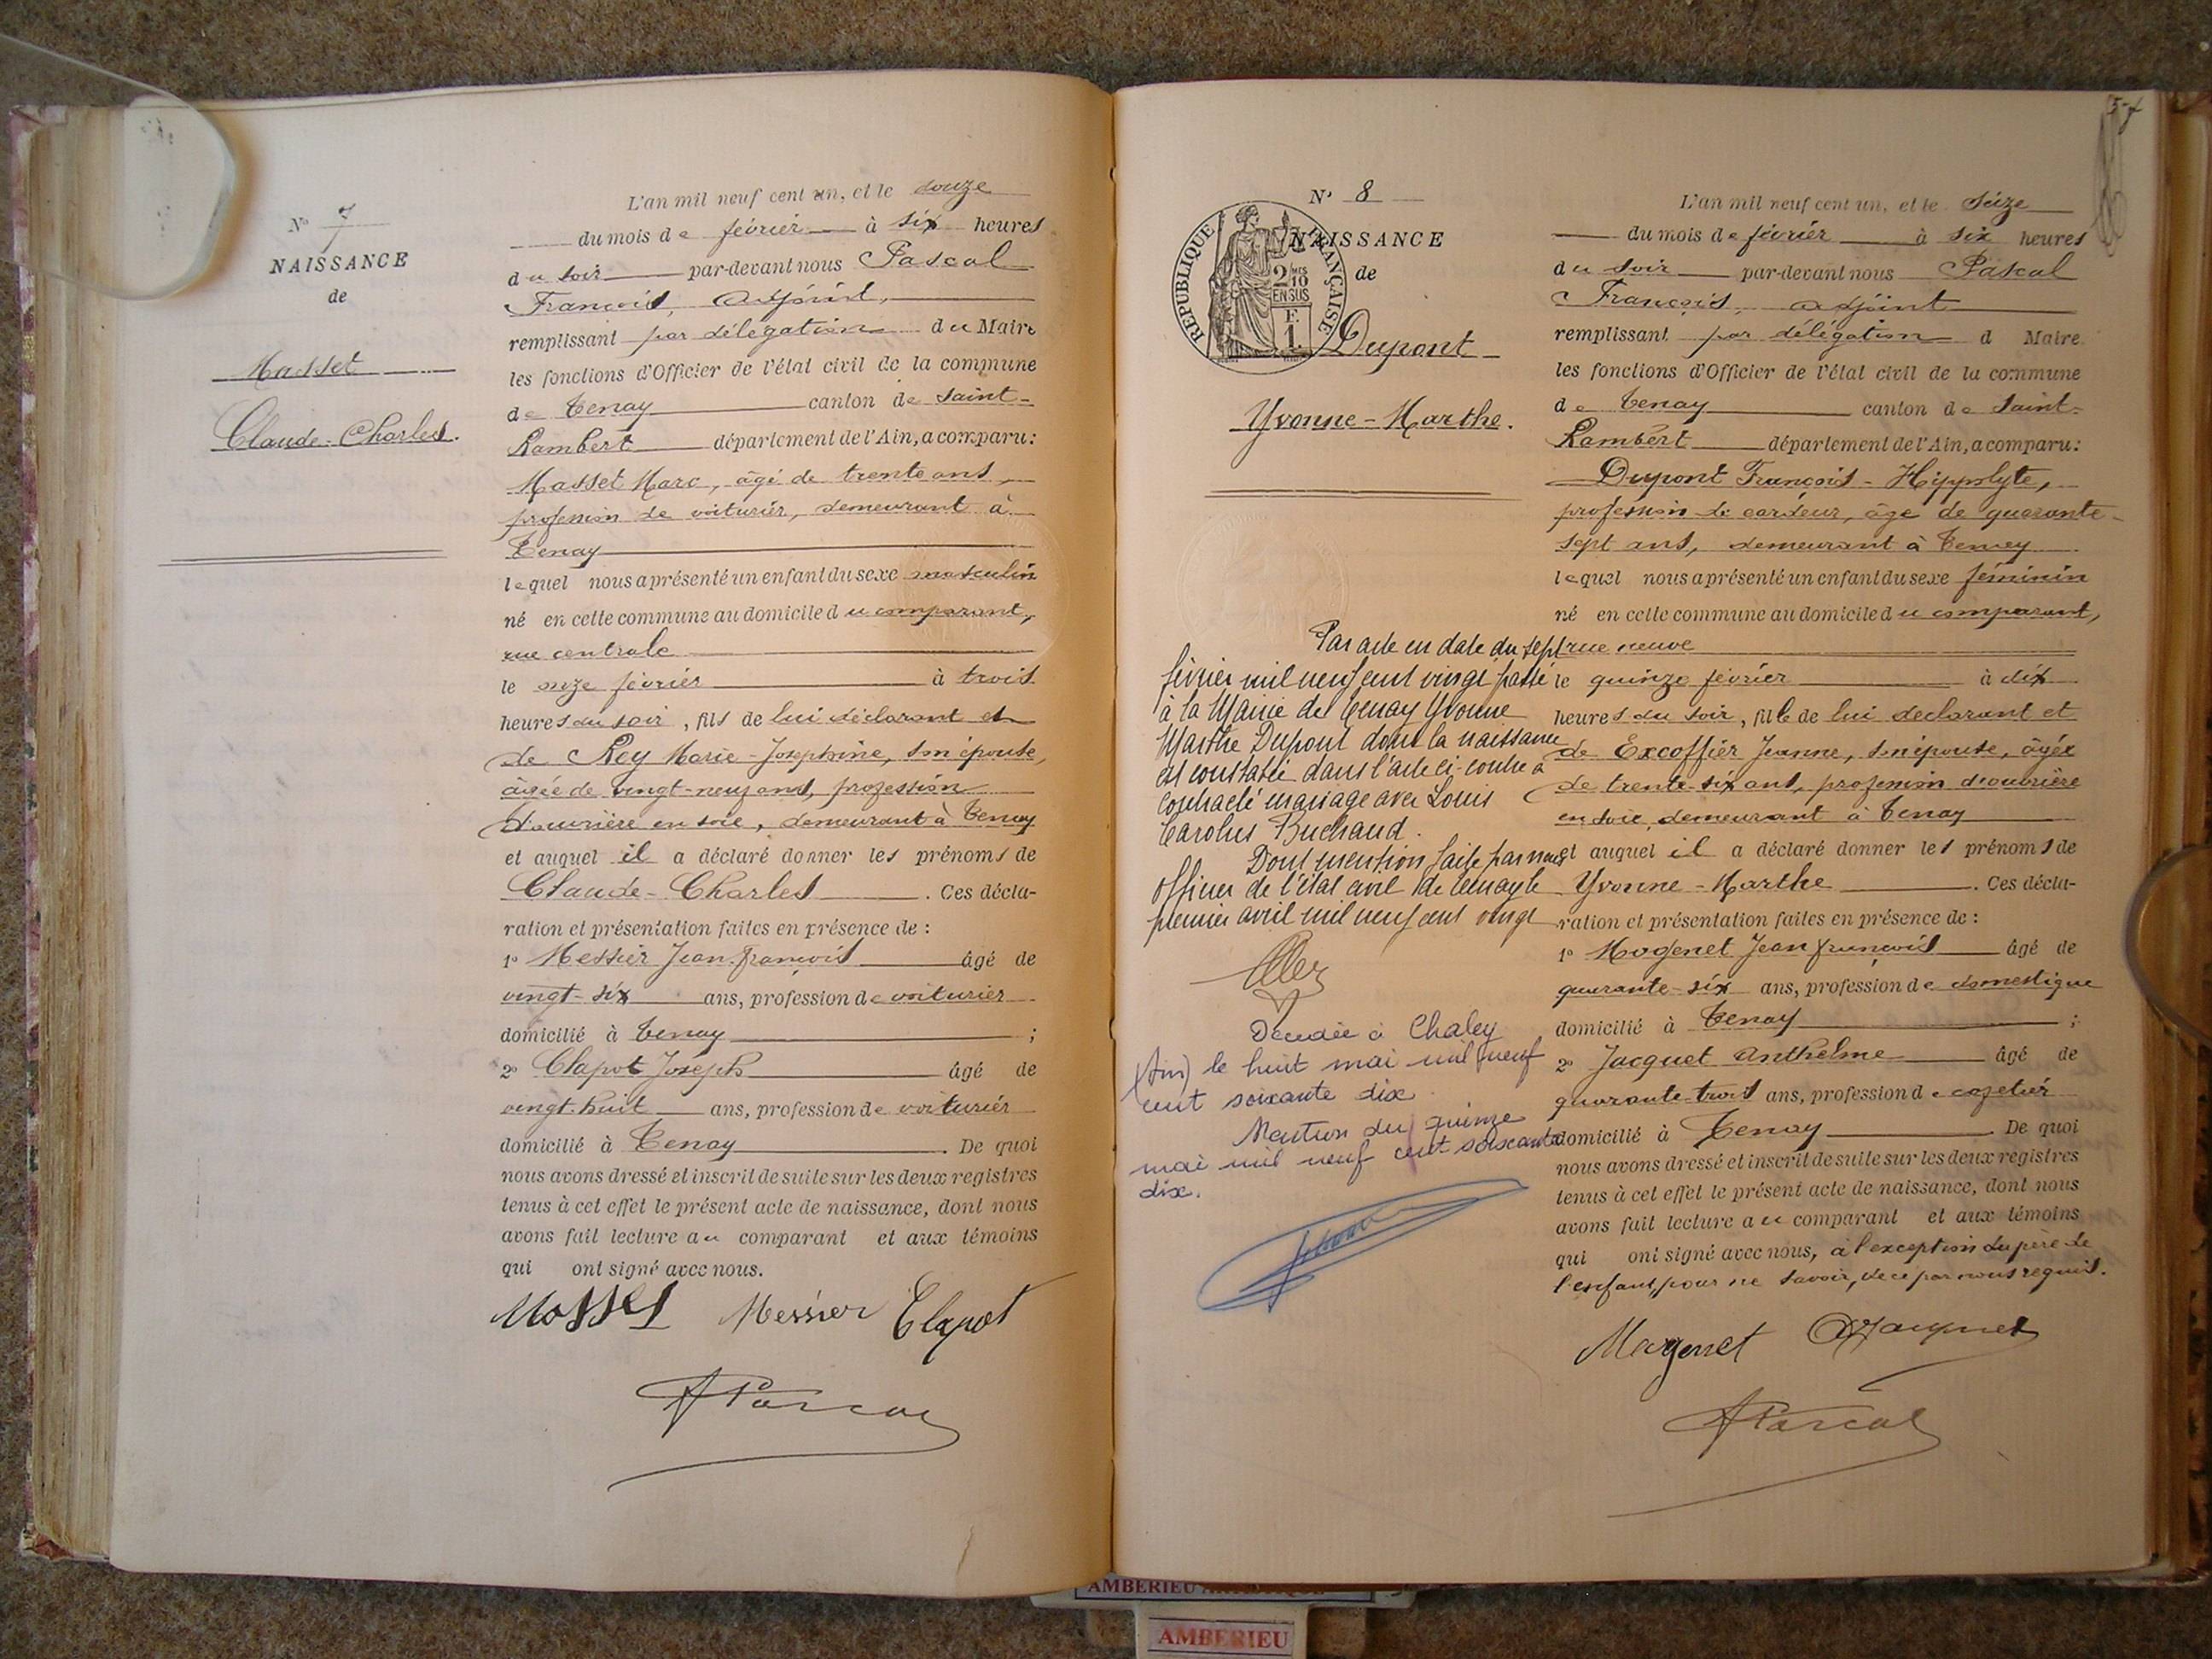 N° 7
NAISSANCE
de
Masset
Claude-Charles.
L'an mil neuf cent un, et le douze
du mois de février à six heures
du soir par-devant nous Pascal
François, adjoint,
remplissant par délégation du Maire
les fonctions d'Officier de l'état civil de la commune
de Tenay canton de Saint-
Rambert département de l'Ain, a comparu :
Masset Marc, âgé de trente ans,
profession de voiturier, demeurant à
Tenay
lequel nous a présenté un enfant du sexe masculin
né en cette commune au domicile du comparant,
rue centrale
le onze février à trois
heures du soir, fils de lui déclarant et
de Rey Marie-Josephine, son épouse,
âgée de vingt-neuf ans, profession
d'ouvrière en soie, demeurant à Tenay
et auquel il a déclaré donner les prénoms de
Claude-Charles. Ces décla-
ration et présentation faites en présence de :
1° Messier Jean-françois âgé de
vingt-six ans, profession de voiturier
domicilié à Tenay ;
2° Clapot Joseph âgé de
vingt-huit ans, profession de voiturier
domicilié à Tenay. De quoi
nous avons dressé et inscrit de suite sur les deux registres
tenus à cet effet le présent acte de naissance, dont nous
avons fait lecture au comparant et aux témoins
qui ont signé avec nous.
Masset Messier Clapot
Pascal
57
N° 8
NAISSANCE
de
RÉPUBLIQUE FRANÇAISE
2/10 MES
EN SUS
F.
1
Dupont
Yvonne-Marthe.
Par acte en date du sept
février mil neuf cent vingt passé
à la Mairie de Tenay Yvonne
Marthe Dupont dont la naissance
est constatée dans l'acte ci-contre a
contracté mariage avec Louis
Carolus Buchaud.
Dont mention faite par nous
officier de l'état civil de Tenay le
premier avril mil neuf cent vingt
Décédée à Chaley
(Ain) le huit mai mil neuf
cent soixante dix
Mention du quinze
mai mil neuf cent soixante
dix.
L'an mil neuf cent un, et le seize
du mois de février à six heures
du soir par-devant nous Pascal
François, adjoint
remplissant par délégation d Maire
les fonctions d'Officier de l'état civil de la commune
de Tenay canton de Saint-
Rambert département de l'Ain, a comparu :
Dupont François-Hippolyte,
profession de cardeur, âgé de quarante-
sept ans, demeurant à Tenay
lequel nous a présenté un enfant du sexe féminin
né en cette commune au domicile du comparant,
rue neuve
le quinze février à dix
heures du soir, fille de lui déclarant et
de Excoffier Jeanne, son épouse, âgée
de trente-six ans, profession d'ouvrière
en soie, demeurant à Tenay
et auquel il a déclaré donner les prénoms de
Yvonne-Marthe. Ces décla-
ration et présentation faites en présence de :
1° Mogenet Jean françois âgé de
quarante-six ans, profession de domestique
domicilié à Tenay ;
2° Jacquet Anthelme âgé de
quarante-trois ans, profession de cafetier
domicilié à Tenay. De quoi
nous avons dressé et inscrit de suite sur les deux registres
tenus à cet effet le présent acte de naissance, dont nous
avons fait lecture au comparant et aux témoins
qui ont signé avec nous, à l'exception du père de
l'enfant, pour ne savoir, de ce par nous requis.
Mogenet Jacquet
Pascal
AMBERIEU
AMBERIEU